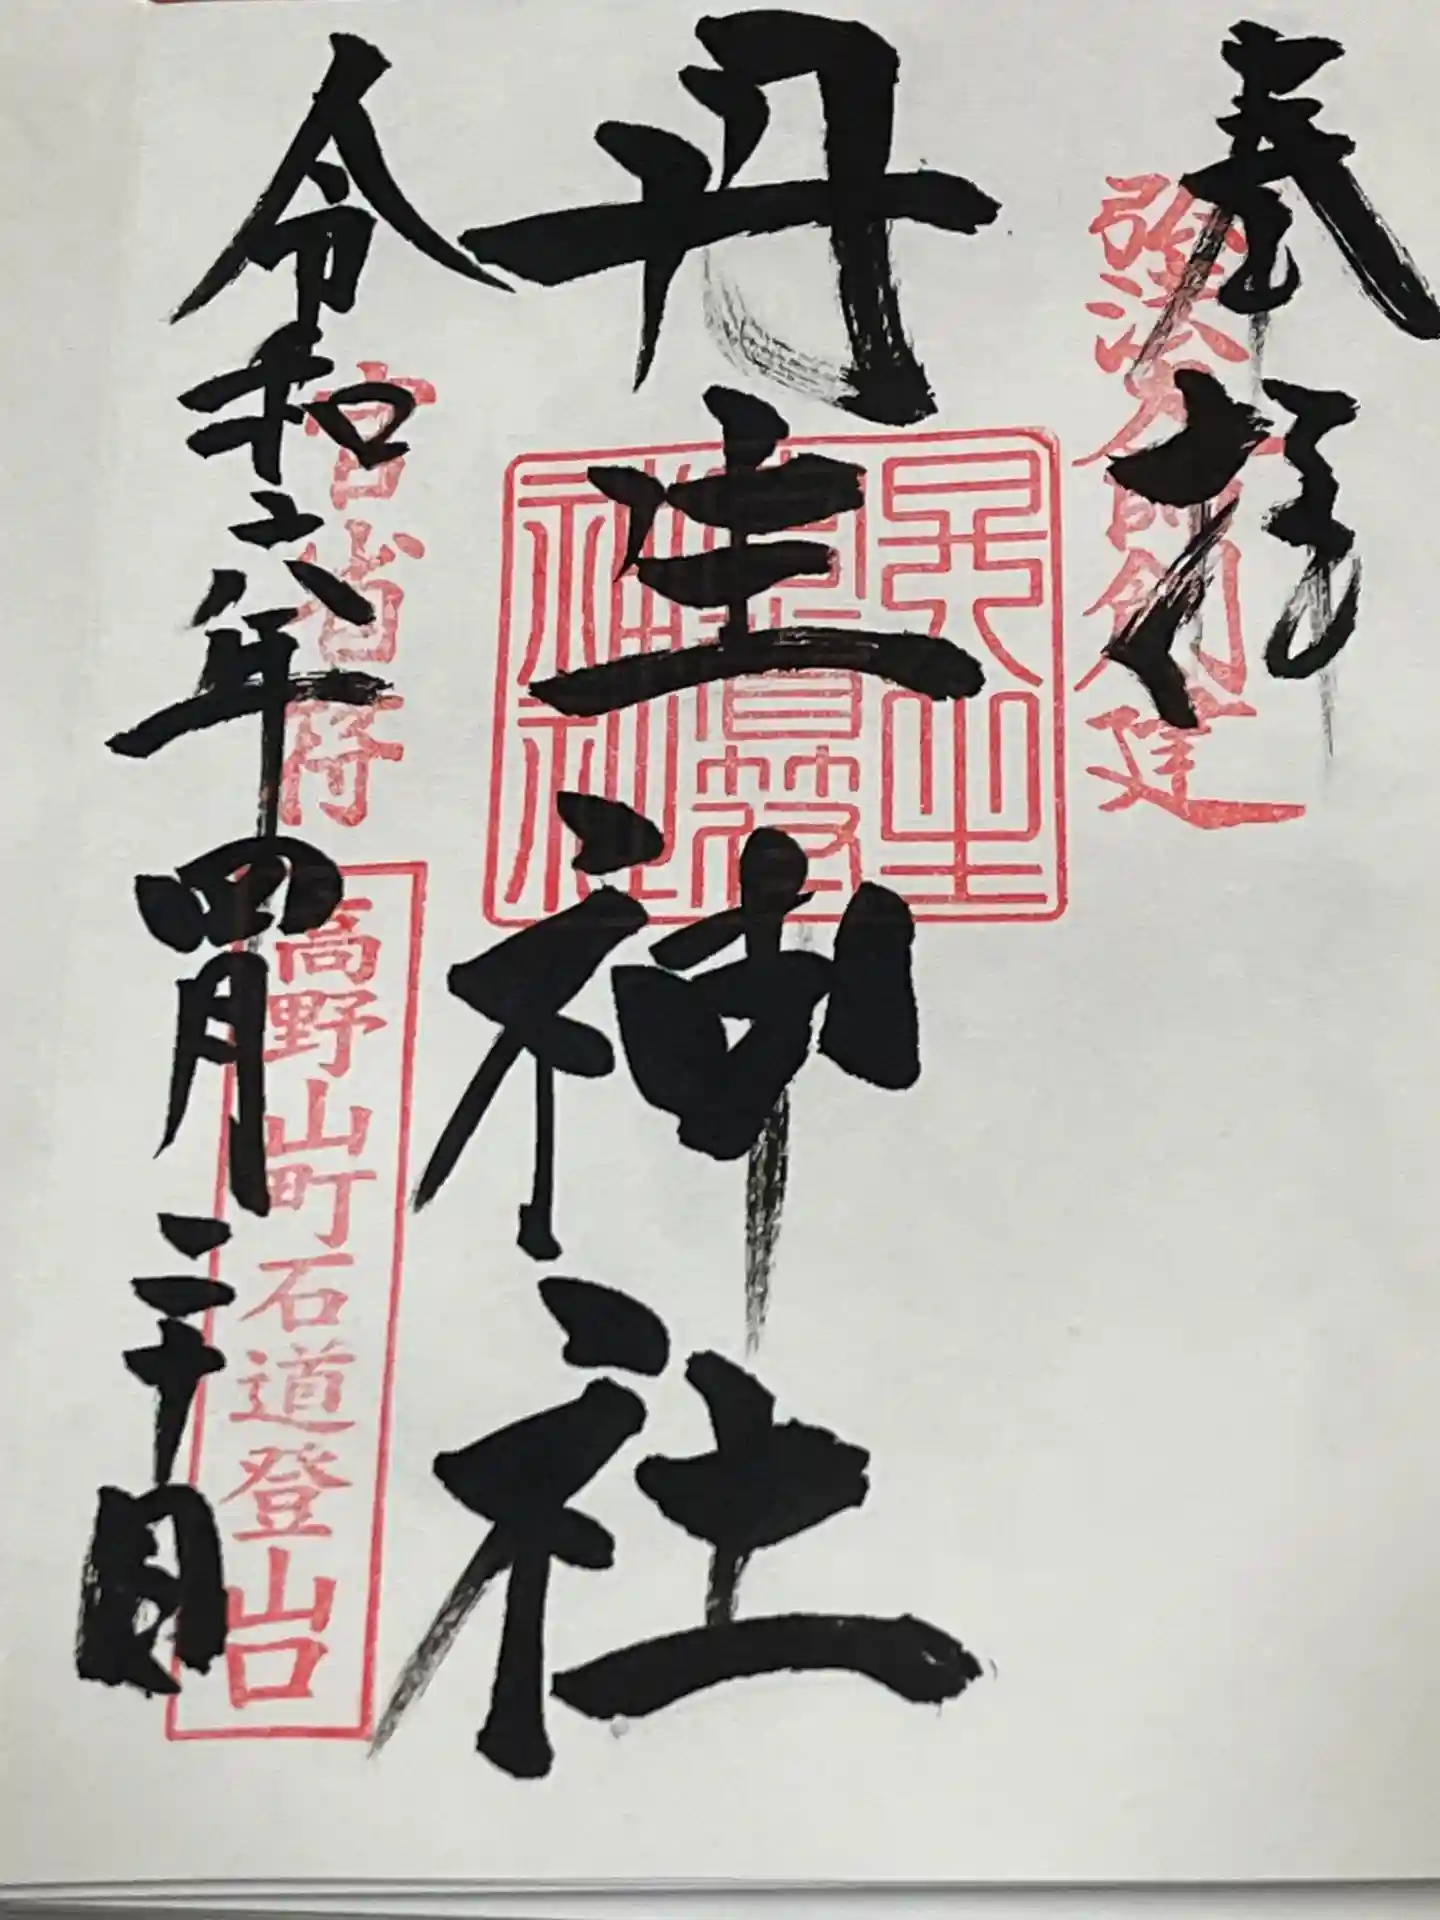 奉拝
弘法大師創建
丹生神社
丹生官省符神社
官省符
高野山町石道登山口
令和六年四月二十日